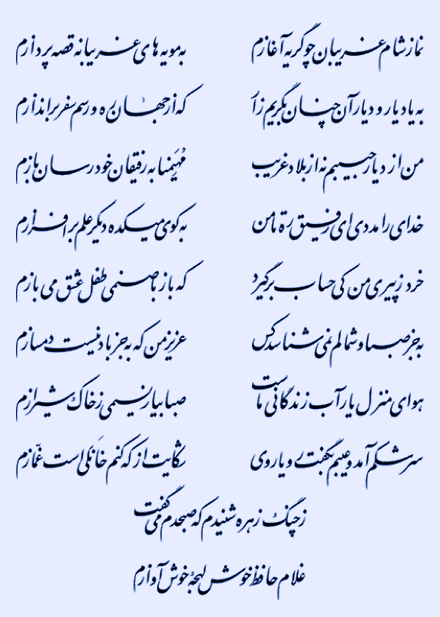 نماز شام غریبان چو گریه آغازم به مویه‌های غریبانه قصه پردازم
به یاد یار و دیار آن چنان بگریم زار که از جهان ره و رسم سفر براندازم
من از دیار حبیبم نه از بلاد غریب مهیمنا به رفیقان خود رسان بازم
خدای را مددی ای رفیق ره تا من به کوی میکده دیگر علم برافرازم
خرد ز پیری من کی حساب برگیرد که باز با صنمی طفل عشق می‌بازم
به جز صبا و شمالم نمی‌شناسد کس عزیز من که به جز باد نیست دمسازم
هوای منزل یار آب زندگانی ماست صبا بیار نسیمی ز خاک شیرازم
سرشکم آمد و عیبم بگفت روی به روی شکایت از که کنم خانگیست غمازم
ز چنگ زهره شنیدم که صبحدم می‌گفت
غلام حافظ خوش لهجه خوش آوازم